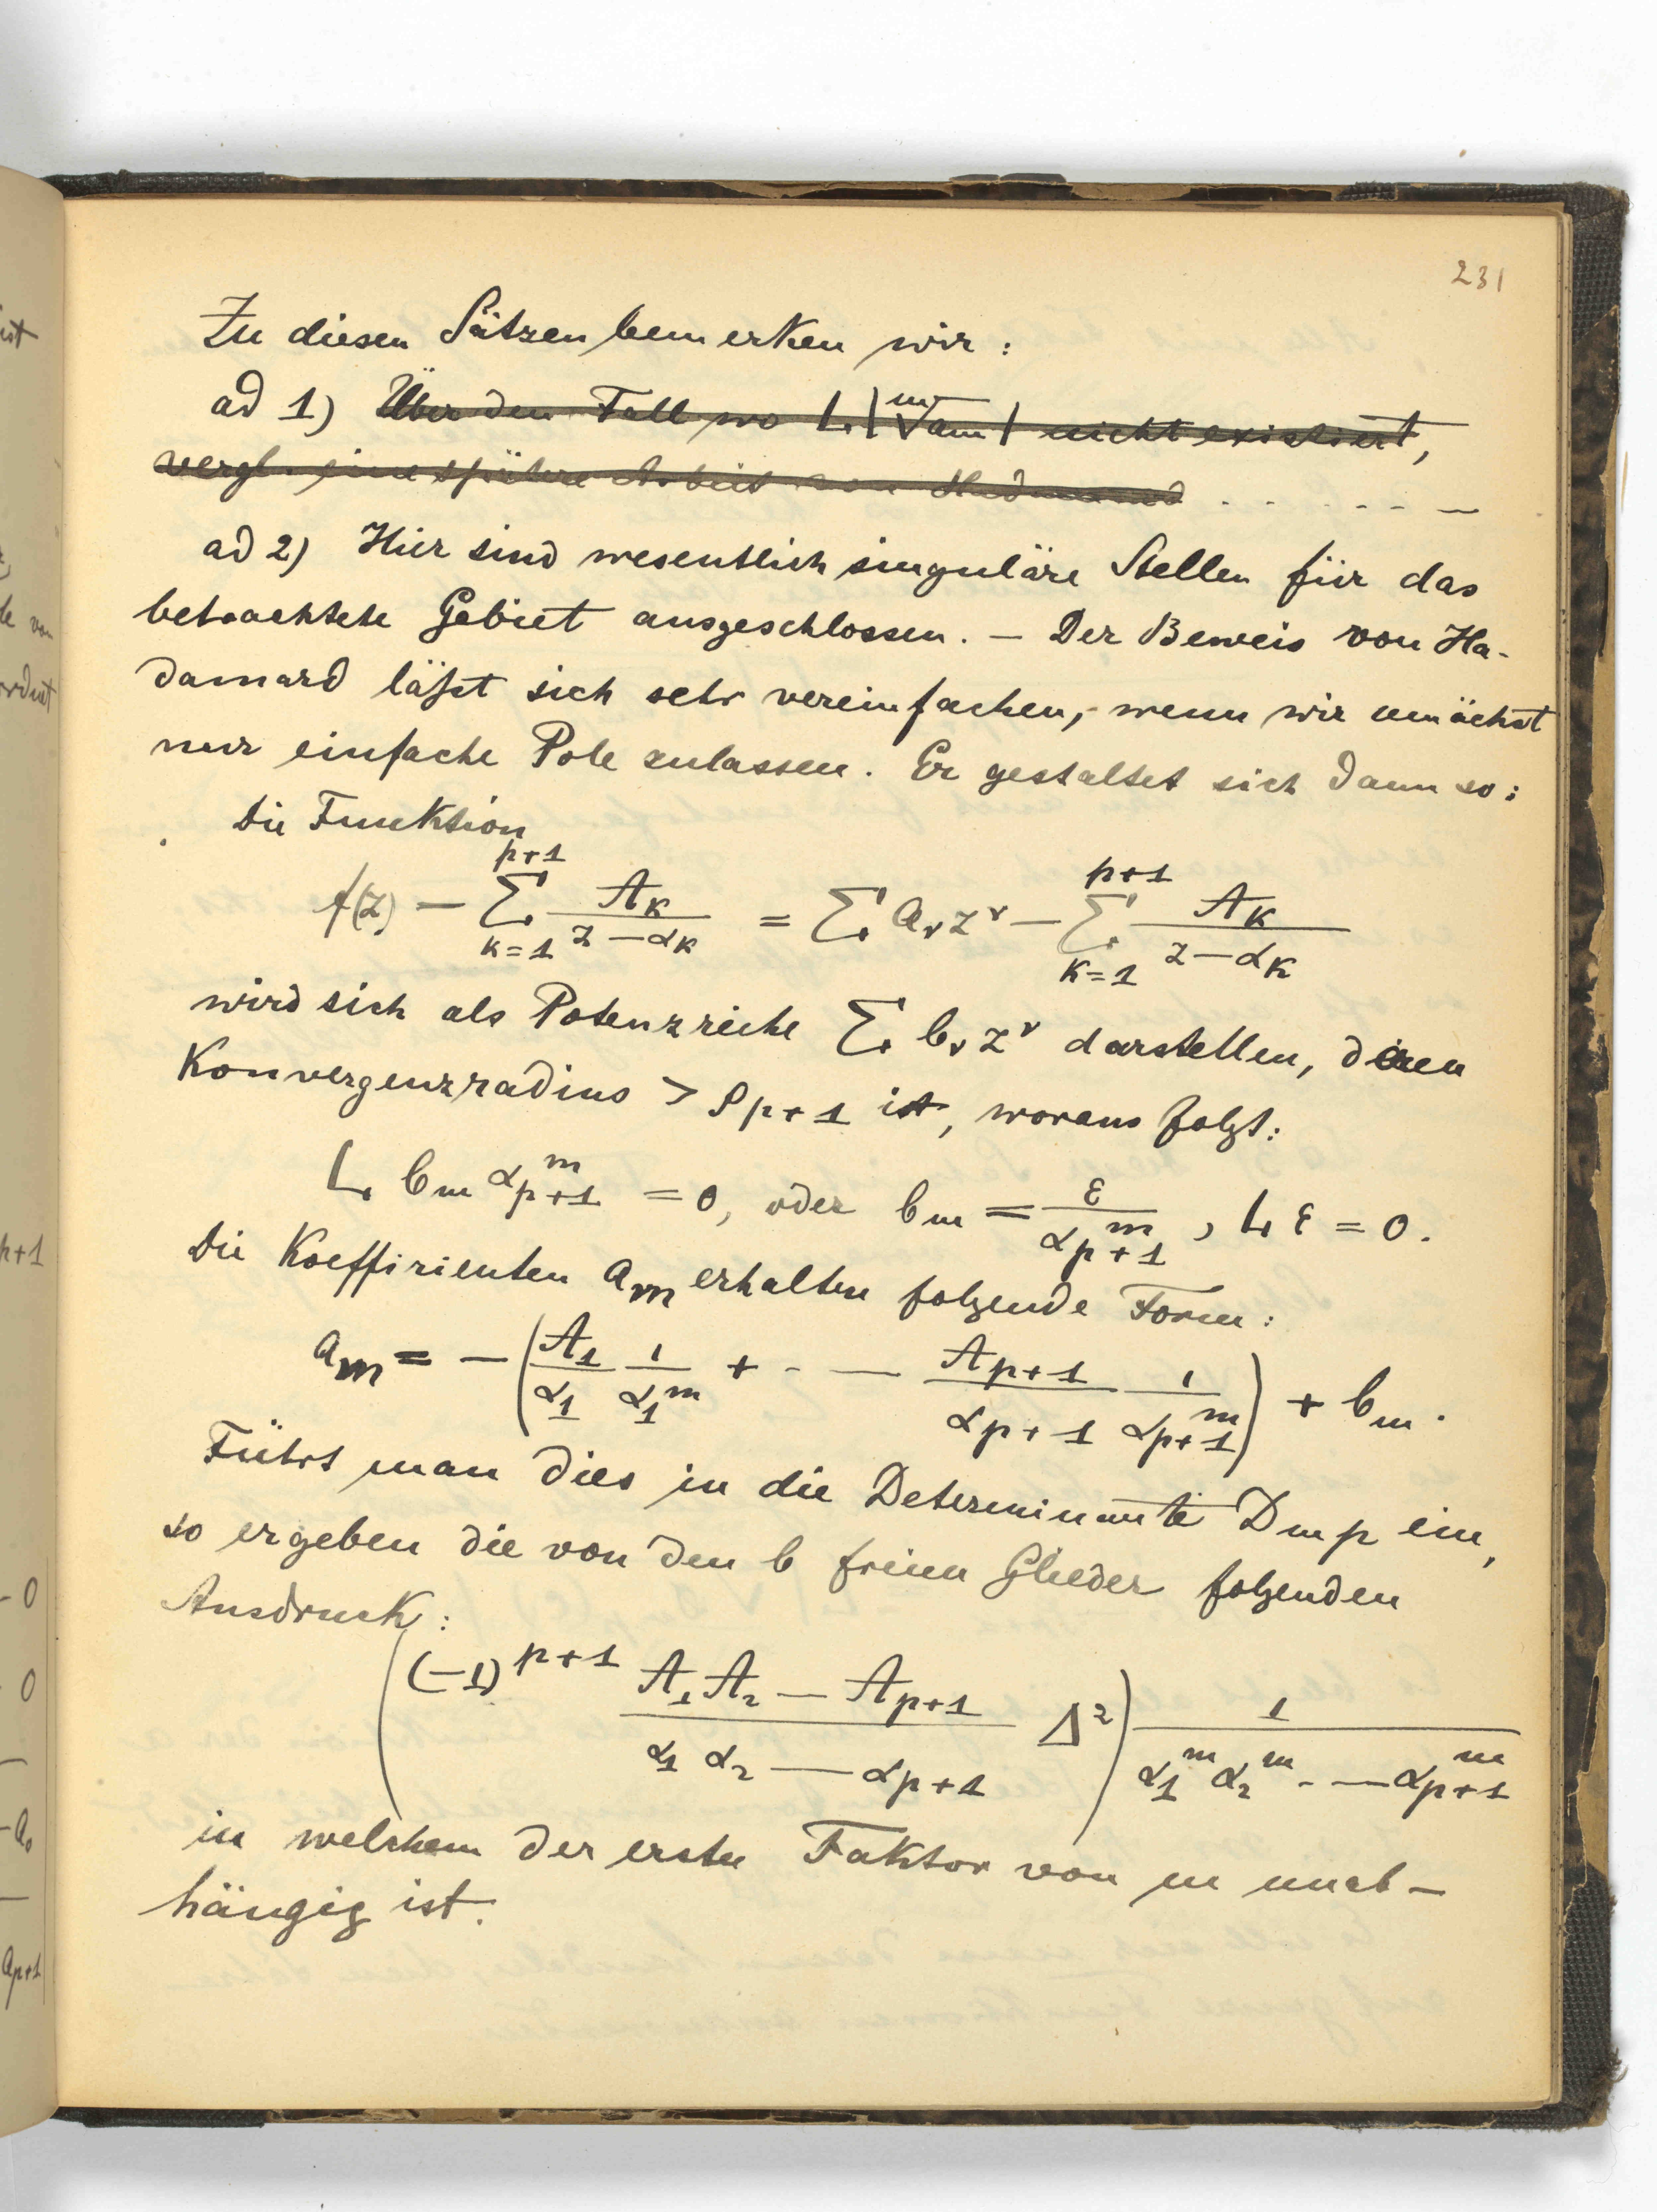 231
Zu diesen Sätzen bemerken wir:
ad 1) Über den Fall wo L |ᵐ√am| nicht existiert,
vergl. eine spätere Arbeit von Hadamard . . . . . . –
ad 2) Hier sind wesentlich singuläre Stellen für das
betrachtete Gebiet ausgeschlossen. – Der Beweis von Ha-
damard läßt sich sehr vereinfachen, wenn wir zunächst
nur einfache Pole zulassen. Er gestaltet sich dann so:
Die Funktion
f(z) — \sum_{k=1}^{p+1} \frac{A_k}{z-α_k} = \sum a_ν z^ν — \sum_{k=1}^{p+1} \frac{A_k}{z-α_k}
wird sich als Potenzreihe \sum b_ν z^ν darstellen, deren
Konvergenzradius > ρ_{p+1} ist, woraus folgt:
L b_m α_{p+1}^m = 0, oder b_m = \frac{ε}{α_{p+1}^m}, L ε = 0.
Die Koeffizienten a_m erhalten folgende Form:
a_m = — (\frac{A_1}{α_1} \frac{1}{α_1^m} + - — \frac{A_{p+1}}{α_{p+1}} \frac{1}{α_{p+1}^m}) + b_m.
Führt man dies in die Determinante D_{mp} ein,
so ergeben die von den b freien Glieder folgenden
Ausdruck:
((-1)^{p+1} \frac{A_1 A_2 — A_{p+1}}{α_1 α_2 — α_{p+1}} Δ^2) \frac{1}{α_1^m α_2^m - — α_{p+1}^m}
in welchem der erste Faktor von m unab-
hängig ist.